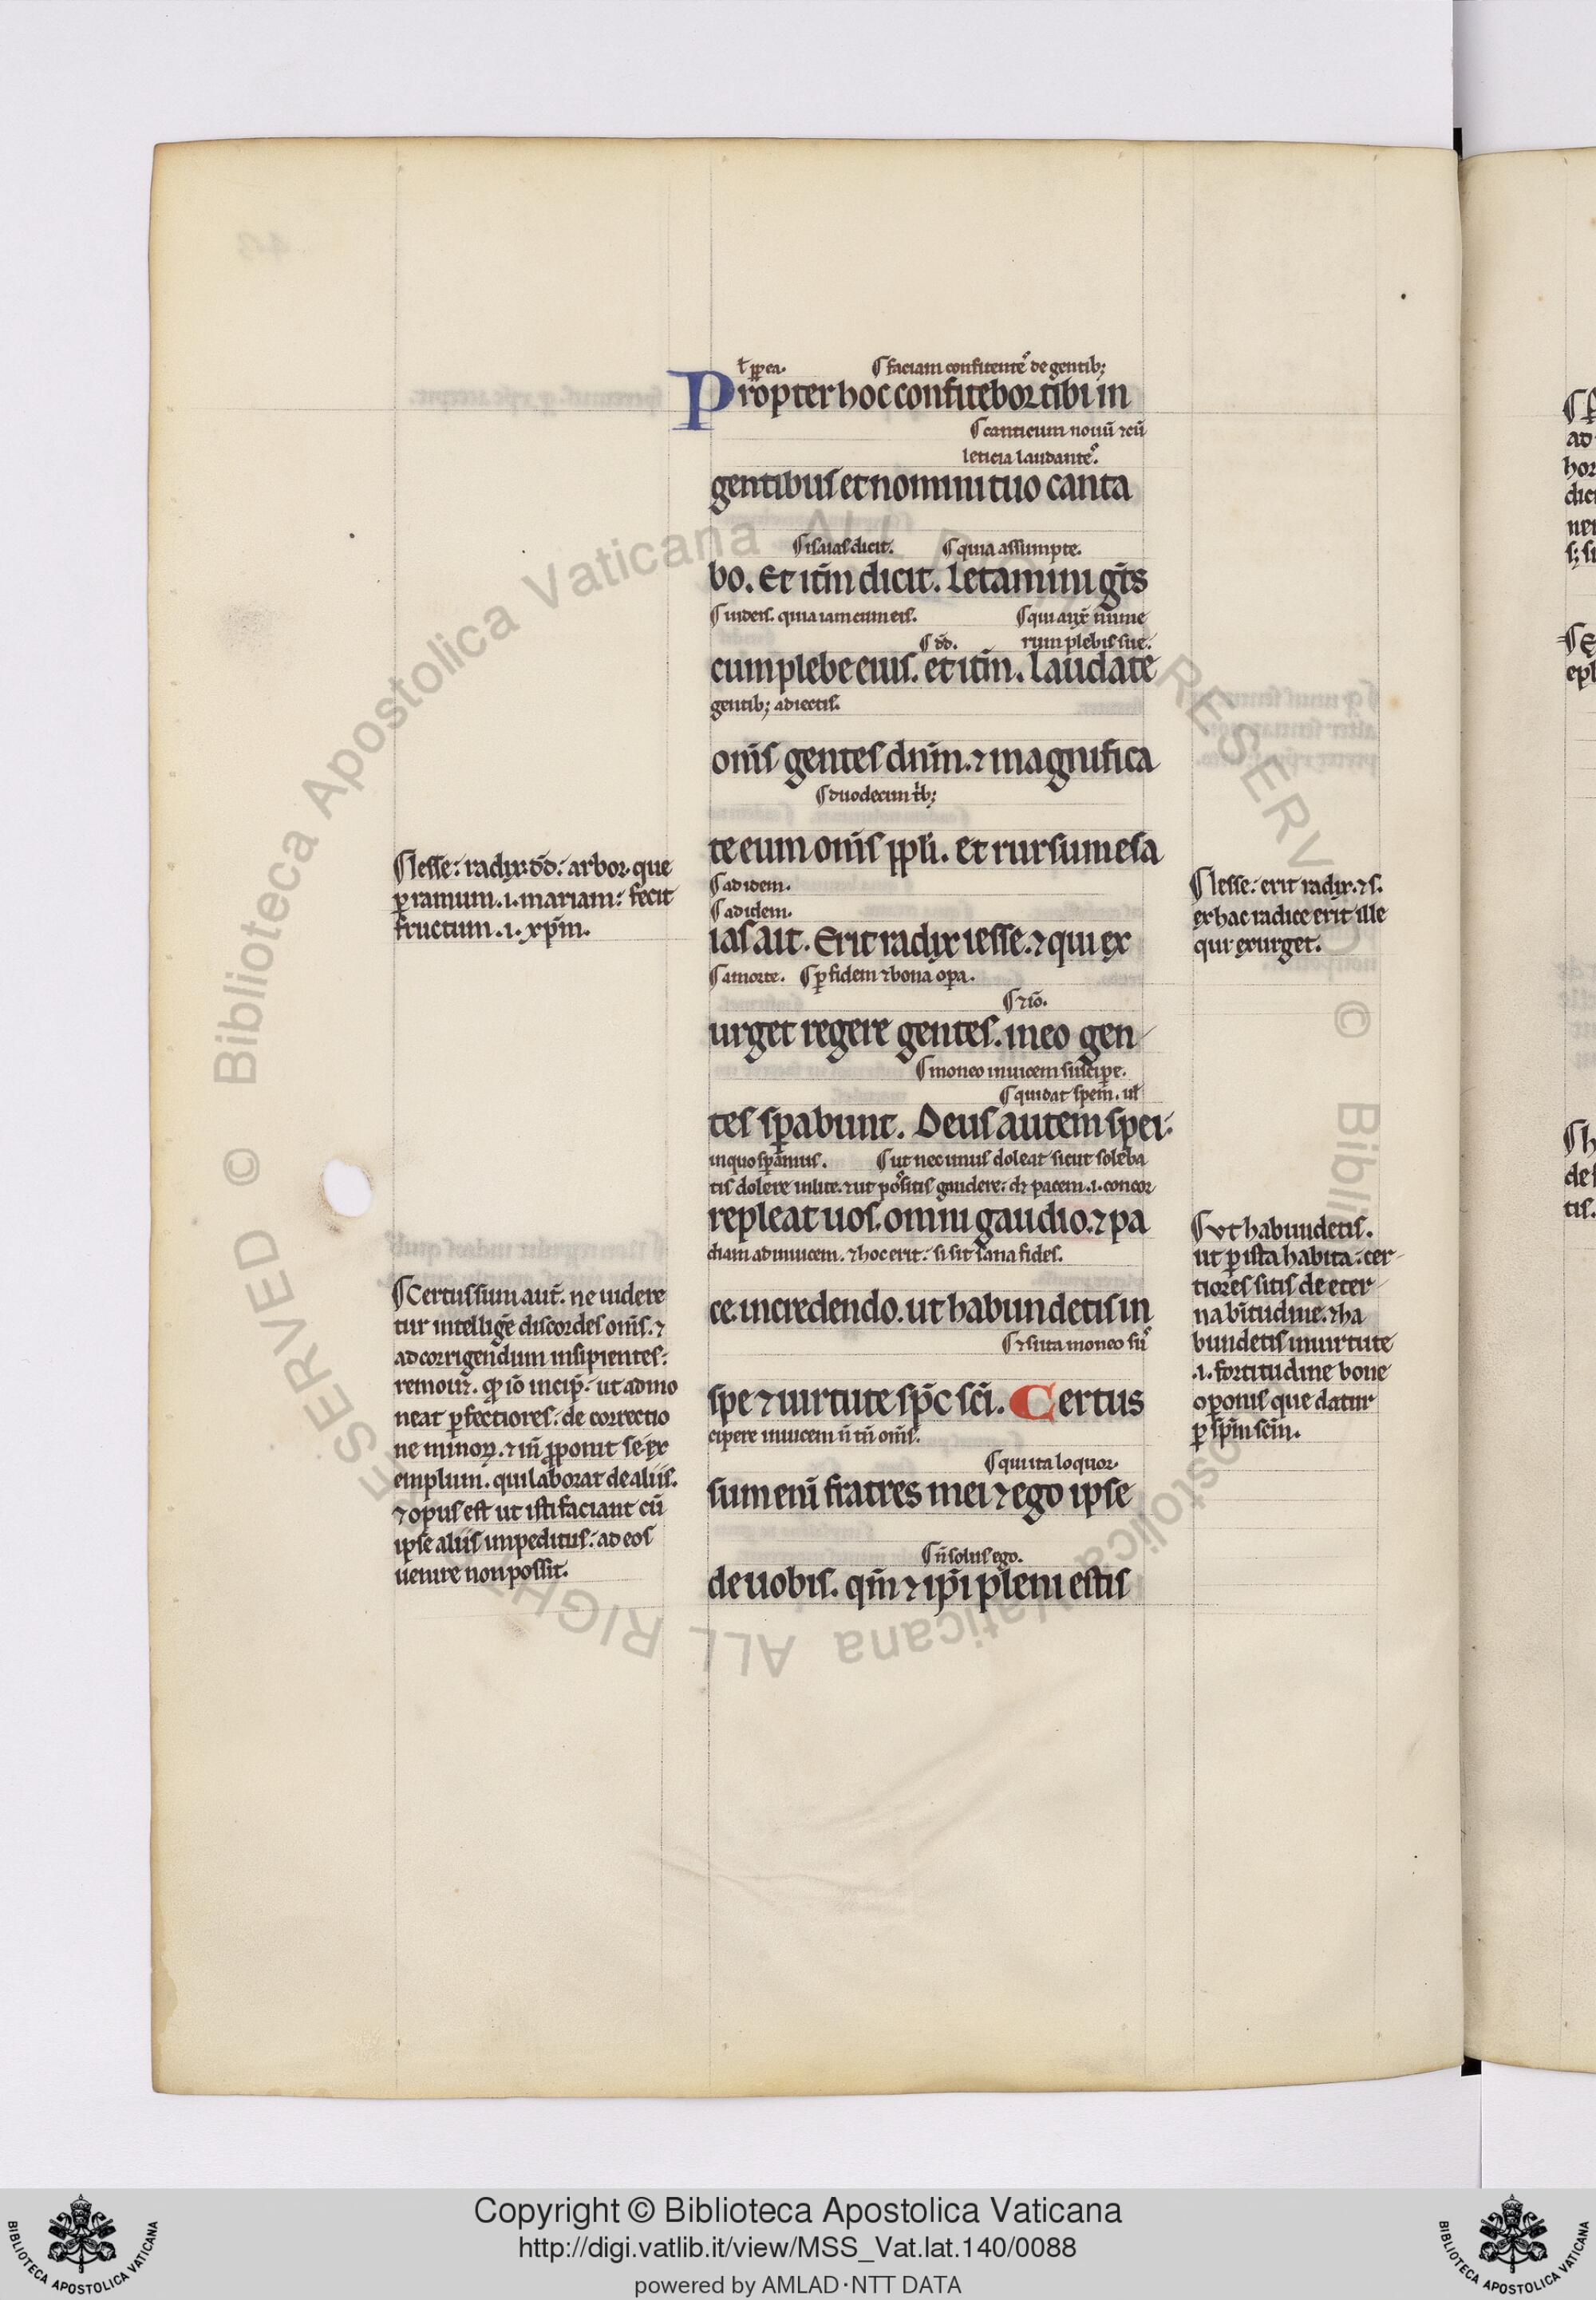 ł ꝓpt̄ea. ¶ faciam confitent᷒ de gentib;
Propter hoc confitebor tibi in
¶ canticum nouū ⁊ cū
leticia laudante᷒.
gentibus et nomini tuo canta
¶ isaias dicit. ¶ quia assumpte.
bo. Et itm̄ dicit. Letamini gt̄s
¶ iudeis. quia iam cum eis. ¶ qui aux̄ nume
¶ dd̄. rum plebis sue.
cum plebe eius. et itm̄. Laudate
gentib; adiectis.
om̄s gentes dn̄m. ⁊ magnifica
¶ duodecim t̄b;
te eum om̄s ppl̄i. Et rursum esa
¶ ad idem.
¶ ad idem.
ias ait. Erit radix iesse. ⁊ qui ex
¶ a morte. ¶ ꝑ fidem ⁊ bona opa.
¶ ⁊ iō.
urget regere gentes. in eo gen
¶ moneo inuicem suscipe.
¶ qui dat spem. ul̄
tes spabunt. Deus autem spei.
in quo spamus. ¶ ut nec unus doleat sicut soleba
tis dolere in lite. ⁊ ut possitis gaudere. det pacem .i. concor
repleat uos. omni gaudio. ⁊ pa
diam ad inuicem. ⁊ hoc erit. si sit sana fides.
ce. in credendo. ut habundetis in
¶ Et si ita moneo su᷒
spe ⁊ uirtute sp̄c sc̄i. Certus
cipere inuicem n̄ tn̄ om̄s.
¶ qui ita loquor.
sum eni fratres mei ⁊ ego ipse
¶ n̄ solus ego.
de uobis. qm̄ ⁊ ip̄i pleni estis
¶ Iesse. radix. dd̄. arbor. que
ꝑ ramum .i. mariam. fecit
fructum .i. xp̄m.
¶ Certus sum aut̄. ne uidere
tur intellige discordes om̄s. ⁊
ad corrigendum insipientes.
remouet. iō incip̄. ut admo
neat ꝑfectiores. de correctio
ne minoꝝ. ⁊ in ꝓponit se ex
emplum. qui laborat de aliis.
⁊ opus est ut isti faciant cū
ipse aliis impeditus. ad eos
uenire non possit.
¶ Iesse. erit radix. ⁊ s.
ex hac radice erit ille
qui exurget.
¶ Vt habundetis.
ut ꝑ ista habita. cer
tiores sitis de eter
na b̄itudine. ⁊ ha
bundetis in uirtute
.i. fortitudine bone
oponis que datur
ꝑ sp̄m sc̄m.
© Biblioteca Apostolica Vaticana ALL RIGHTS RESERVED
Copyright © Biblioteca Apostolica Vaticana
http://digi.vatlib.it/view/MSS_Vat.lat.140/0088
powered by AMLAD·NTT DATA
BIBLIOTECA APOSTOLICA VATICANA
BIBLIOTECA APOSTOLICA VATICANA